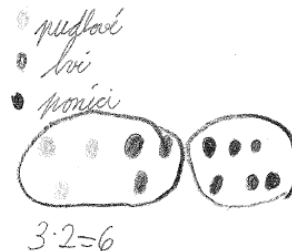 pudlové
lvi
poníci
3·2=6